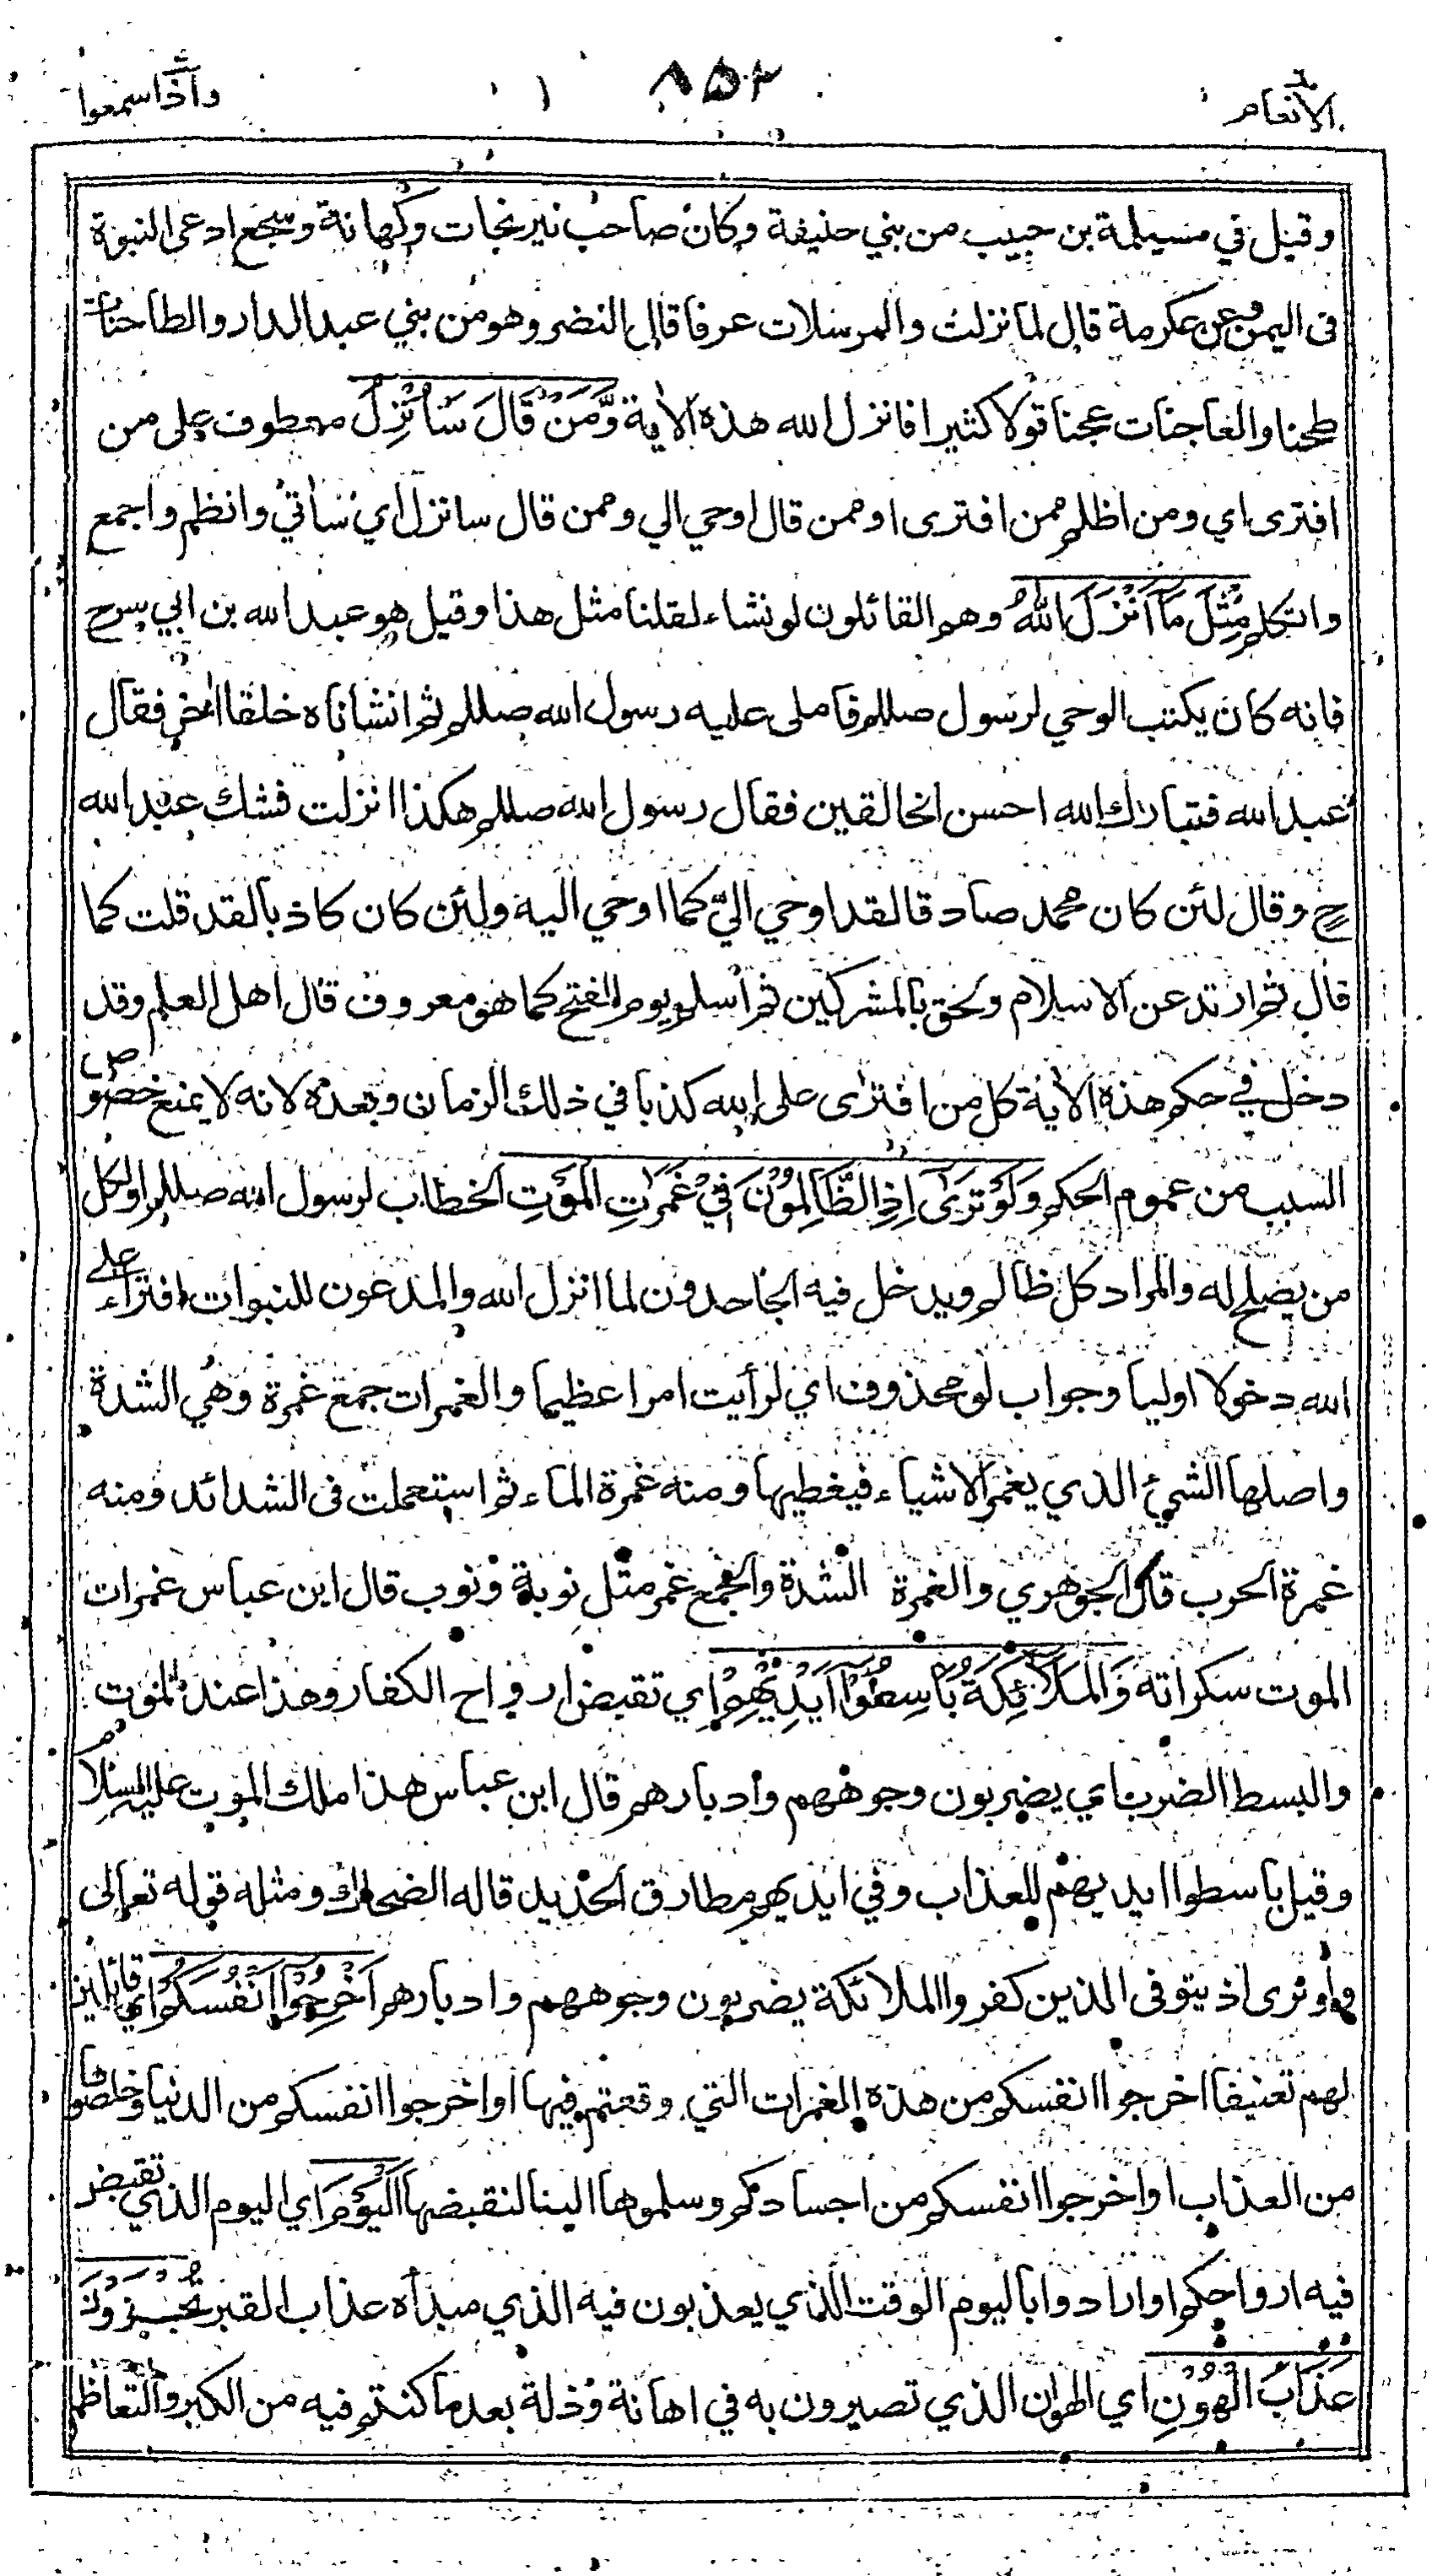 الانعام ٦
٨٥٣
واذا سمعوا
وقيل في مسيلمة بن حبيب من بني حنيفة وكان صاحب نيرنجات وكهانة وسجع ادعى النبوة
فى اليمن وعن عكرمة قال لما نزلت والمرسلات عرفا قال النضر وهو من بني عبد الدار والطاحنات
طحنا والعاجنات عجنا قولا كثيرا فانزل الله هذه الاٰية وَّمَنْ قَالَ سَاُنْزِلُ معطوف على من
افترى اي ومن اظلم ممن افترى او ممن قال اوحي الي وممن قال سانزل اي سأتي وانظم واجمع
واتكلم مِثْلَ مَآ اَنْزَلَ اللهُ وهم القائلون لو نشاء لقلنا مثل هذا وقيل هو عبد الله بن ابي سرح
فانه كان يكتب الوحي لرسول صللم فاملى عليه رسول الله صللم ثم انشاناه خلقا اٰخر فقال
عبد الله فتبارك الله احسن الخالقين فقال رسول الله صللم هكذا انزلت فشك عبد الله
ح وقال لئن كان محمد صادقا لقد اوحي اليّ كما اوحي اليه ولئن كان كاذبا لقد قلت كما
قال ثم ارتد عن الاسلام ولحق بالمشركين ثم أسلم يوم الفتح كما هو معروف قال اهل العلم وقد
دخل في حكم هذه الاٰية كل من افترى على الله كذبا في ذلك الزمان وبعده لانه لا يمنع خصوص
السبب من عموم الحكم وَلَوْ تَرٰىٓ اِذِ الظّٰلِمُوْنَ فِيْ غَمَرٰتِ الْمَوْتِ الخطاب لرسول الله صللم او لكل
من يصلح له والمراد كل ظالم ويدخل فيه الجاحدون لما انزل الله والمدعون للنبوات افتراء على
الله دخولا اوليا وجواب لو محذوف اي لرأيت امرا عظيما والغمرات جمع غمرة وهي الشدة
واصلها الشيئ الذي يغمر الاشياء فيغطيها ومنه غمرة الماء ثم استعملت فى الشدائد ومنه
غمرة الحرب قال الجوهري والغمرة الشدة والجمع غمر مثل نوبة ونوب قال ابن عباس غمرات
الموت سكراته وَالْمَلَآئِكَةُ بَاسِطُوْٓا اَيْدِيْهِمْ اي تقبض ارواح الكفار وهذا عند الموت
والبسط الضرب اي يضربون وجوههم وادبارهم قال ابن عباس هذا ملك الموت عليه السلام
وقيل باسطوا ايديهم للعذاب وفي ايديهم مطارق الحديد قاله الضحاك ومثله قوله تعالى
ولو ترى اذ يتوفى الذين كفروا الملائكة يضربون وجوههم وادبارهم اَخْرِجُوْٓا اَنْفُسَكُمْ اي قائلين
لهم تعنيفا اخرجوا انفسكم من هذه الغمرات التي وقعتم فيها او اخرجوا انفسكم من الدنيا وخلصوها
من العذاب او اخرجوا انفسكم من اجسادكم وسلموها الينا لنقبضها اَلْيَوْمَ اي اليوم الذي تقبض
فيه ارواحكم او ارادوا باليوم الوقت الذي يعذبون فيه الذي مبدأه عذاب القبر تُجْزَوْنَ
عَذَابَ الْهُوْنِ اي الهوان الذي تصيرون به في اهانة وذلة بعد ما كنتم فيه من الكبر والتعاظم